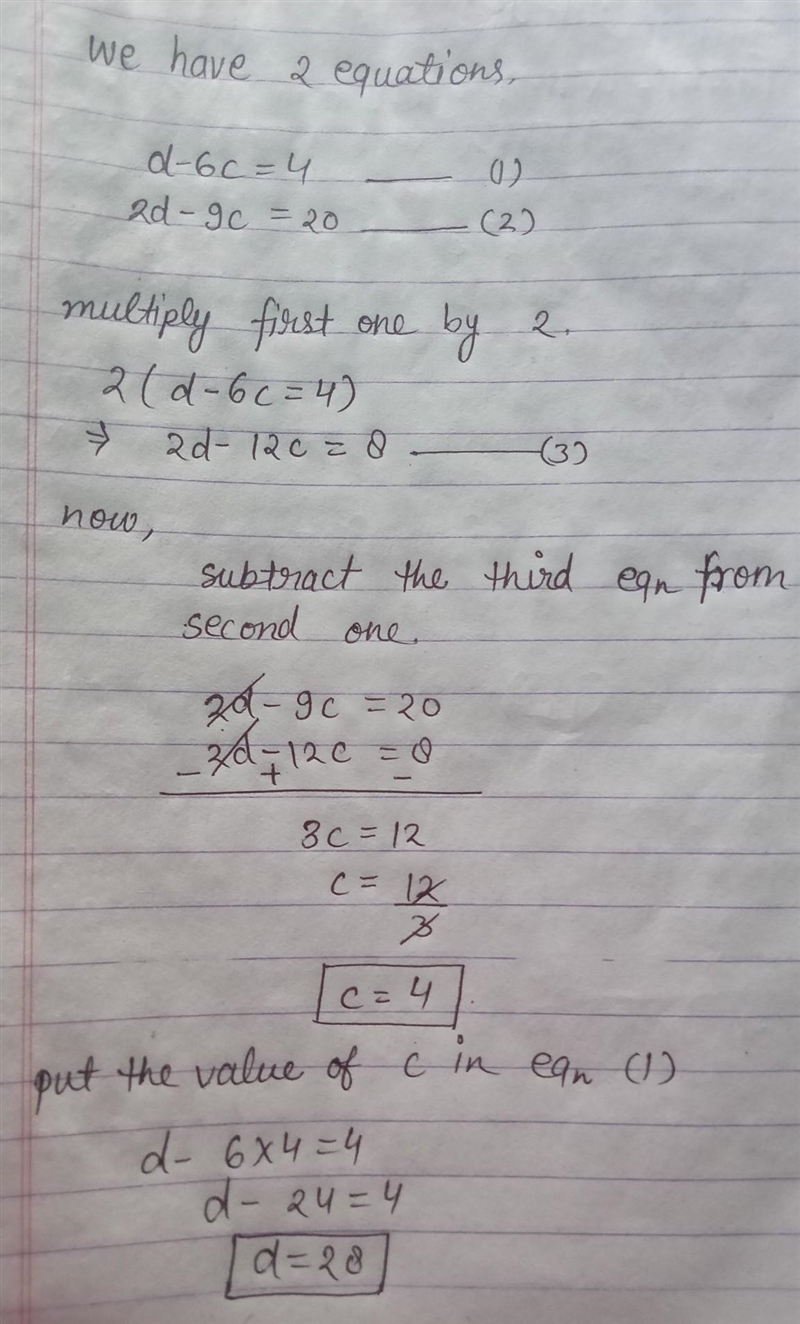 We have 2 equations.
d-6c=4 —— (1)
2d-9c=20 —— (2)
multiply first one by 2.
2(d-6c=4)
⇒ 2d-12c=8 —— (3)
now,
subtract the third eqn from
second one.
2d-9c=20
-2d-12c=8
+ -
3c=12
c=12
3
c=4
put the value of c in eqn (1)
d-6×4=4
d-24=4
d=28